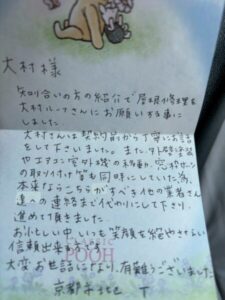 大村様
知り合いの方の紹介で屋根修理を
大村ルーフさんにお願いする事に
しました
大村さんは契約前から丁寧にお話
をして下さいました。また、外壁塗装
やエアコン室外機の移動、窓
の取り付け等も同時にしていた為、
本来ならこちらがすべき他の業者さん
達への連絡まで代わりにして下さり、
進めて頂きました。
お忙しい中、いつも笑顔を絶やさない
信頼出来る
POOH
大変お世話になり、有難うございました
京都市北区 T